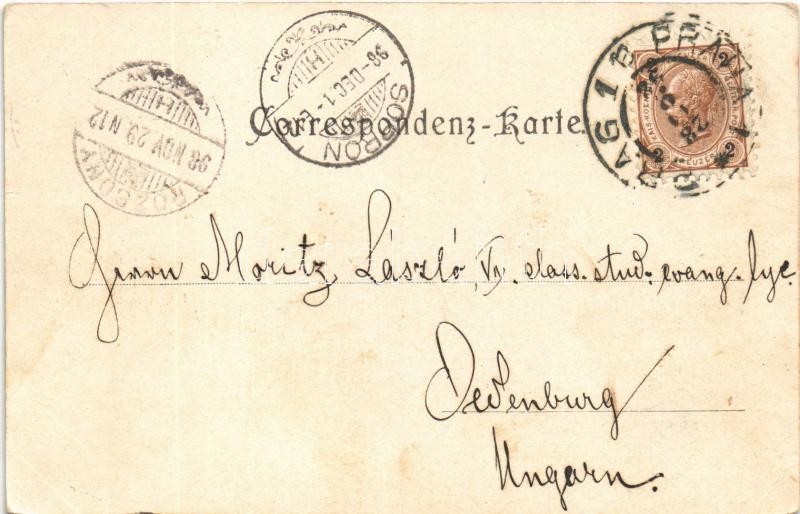 Correspondenz-Karte.
PRAG 1 PRAHA 1
SOPRON
98 DEC. 1
98 NOV 29 N12
2 2
Herrn Moritz László, VI. class. stud. evang. lyc.
Oedenburg
Ungarn.